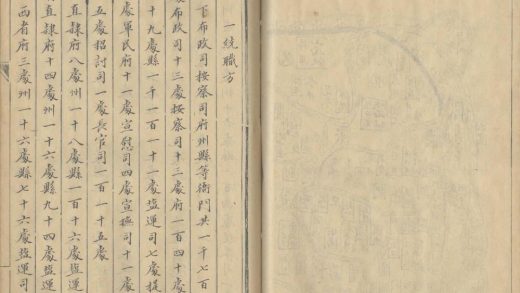 一統職方
下布政司按察司府州縣等衙門共一千七百
布政司十三處按察司十三處府一百四十處
十九處縣一千一百一十一處塩運司七處提
處軍民府十一處宣慰司四處宣撫司十一處
五處招討司一處長官司一百一十五處
直隷府八處州一十八處縣一百十六處塩運
直隷府十四處州一十六處縣九十四處塩運
西者府三處州一十六處縣七十六處塩運司